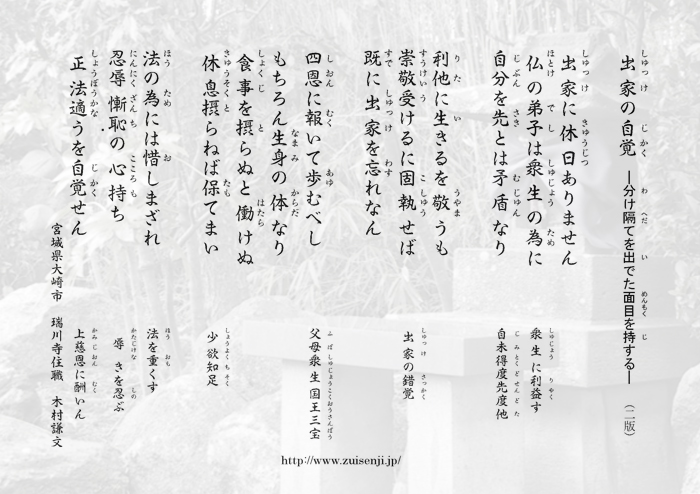 出家の自覚 ―分け隔てを出でた面目を持する― （二版）
出家に休日ありません
仏の弟子は衆生の為に 衆生に利益す
自分を先とは矛盾なり 自未得度先度他
利他に生きるを敬うも
崇敬受けるに固執せば 出家の錯覚
既に出家を忘れなん
四恩に報いて歩むべし 父母衆生国王三宝
もちろん生身の体なり
食事を摂らぬと働けぬ
休息摂らねば保てまい 少欲知足
法の為には惜しまざれ 法を重くす
忍辱慚恥の心持ち 辱きを忍ぶ
正法適うを自覚せん 上慈恩に酬いん
宮城県大崎市 瑞川寺住職 木村謙文
http://www.zuisenji.jp/